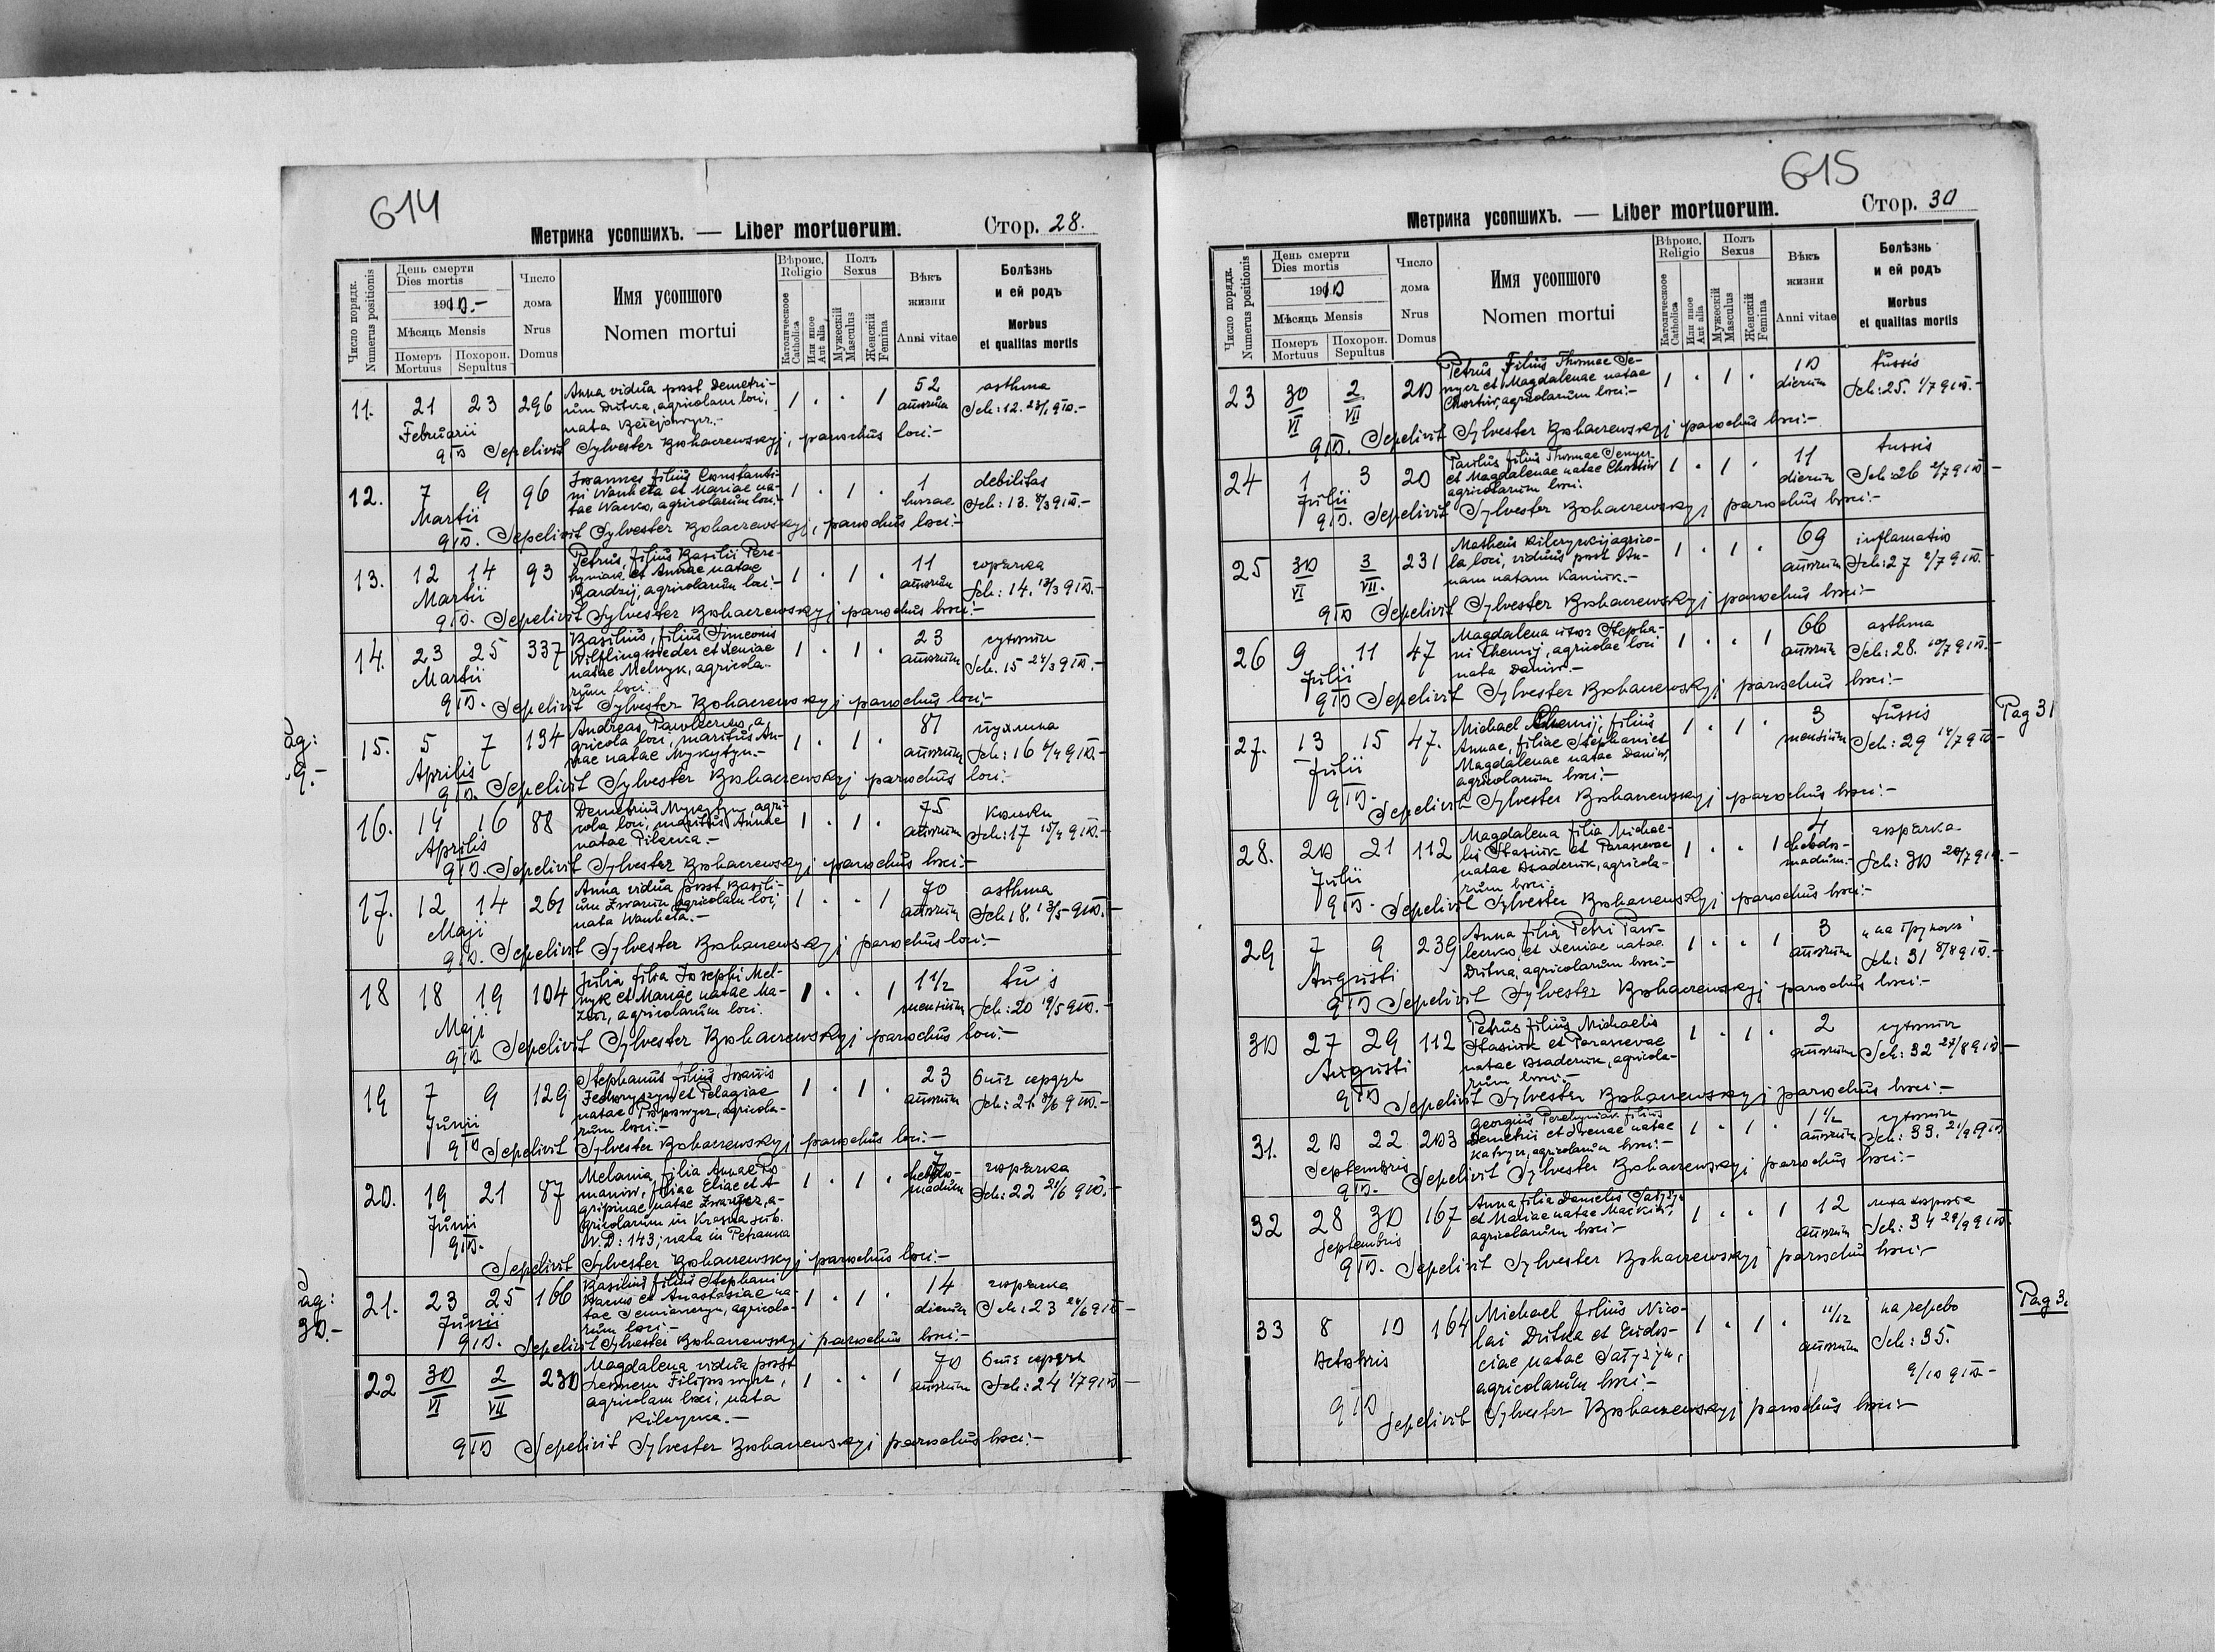 614
Метрика усопшихъ. — Liber mortuorum.
Стор. 28.
Число порядк.
Numerus positionis
День смерти
Dies mortis
1910.-
Мѣсяць Mensis
Померъ
Mortuus
Похорон.
Sepultus
Число
дома
Nrus
Domus
Имя усопшого
Nomen mortui
Вѣроис.
Religio
Католическое
Catholica
Или иное
Aut alia
Полъ
Sexus
Мужескій
Masculus
Женскій
Femina
Вѣкъ
жизни
Anni vitae
Болѣзнь
и ей родъ
Morbus
et qualitas mortis
11. 21 23 296 Anna vidua post Demetri-
um Dutka, agricolam loci,
nata
1 . . 1 52 annorum asthma
Sch: 12. 23/1 910.-
Februarii
910 Sepelivit Sylvester Bohaczewskyj, parochus loci:-
12. 7 9 96 Joannes filius Constanti-
ni Wanheta et Mariae na-
tae Wacko, agricolarum loci:-
1 . 1 . 1 horae debilitas
Sch: 13. 8/3 910.-
Martii
910. Sepelivit Sylvester Bohaczewskyj, parochus loci:-
13. 12 14 93 Petrus, filius Basilii Pere-
hyniak et Annae natae
Bardzij, agricolarum loci:-
1 . 1 . 11 annorum горячка
Sch: 14. 13/3 910.-
Martii
910. Sepelivit Sylvester Bohaczewskyj parochus loci:-
14. 23 25 337 Basilius, filius Simeonis
Wilflingseder et Xeniae
natae Melnyk, agricola-
rum loci.
1 . 1 . 23 annorum сухоти
Sch. 15 24/3 910.-
Martii
910. Sepelivit Sylvester Bohaczewskyj parochus loci:-
Pag:
9.-
15. 5 7 134 Andreas Pawlenko, a-
gricola loci, maritus An-
nae natae Mykytyn.-
1 . 1 . 81 annorum пухлина
Sch: 16 6/4 910.-
Aprilis
910. Sepelivit Sylvester Bohaczewskyj parochus loci:-
16. 14 16 88 Demetrius Mykytyn, agri-
cola loci, maritus Annae
natae Pilecka.-
1 . 1 . 75 annorum кольки
Sch: 17 15/4 910.-
Aprilis
910. Sepelivit Sylvester Bohaczewskyj parochus loci:-
17. 12 14 261 Anna vidua post Basili-
um Zwarun agricolam loci,
nata Wanheta.-
1 . . 1 70 annorum asthma
Sch 18. 13/5 910.-
Maji
910. Sepelivit Sylvester Bohaczewskyj parochus loci:-
18 18 19 104 Julia filia Josephi Mel-
nyk et Mariae natae Ma-
zur, agricolarum loci.
1 . . 1 1 1/2 mensium
Sch: 20 19/5 910.-
Maji
910 Sepelivit Sylvester Bohaczewskyj parochus loci:-
19 7 9 129 Stephanus filius Joannis
Fedoryszyn et Pelagiae
natae Popowycz, agricola-
rum loci:-
1 . 1 . 23 annorum биг сердця
Sch: 21. 8/6 910.-
Junii
910 Sepelivit Sylvester Bohaczewskyj parochus loci:-
20. 19 21 87 Melania, filia Annae Ro-
maniw, filiae Eliae et A-
gripinae natae Zwarycz, a-
gricolarum in Krasna sub.
N.D: 143; nata in Petranka
1 . 1 . 7 hebdo-
madum горячка
Sch: 22 21/6 910.-
Junii
910.
Sepelivit Sylvester Bohaczewskyj parochus loci:-
Pag:
30.-
21. 23 25 166 Basilius filius Stephani
et Anastasiae na-
tae agricola-
rum loci:-
1 . 1 . 14 dierum горячка
Sch: 23 24/6 910-
Junii
910. Sepelivit Sylvester Bohaczewskyj parochus loci:-
22 30/VI 2/VII 230 Magdalena vidua post
Filipowycz,
agricolam loci, nata
Kilczycka.-
1 . . 1 70 annorum биг сердця
Sch: 24 1/7 910-
910 Sepelivit Sylvester Bohaczewskyj parochus loci:-
615
Метрика усопшихъ. — Liber mortuorum.
Стор. 30
Число порядк.
Numerus positionis
День смерти
Dies mortis
1910
Мѣсяць Mensis
Померъ
Mortuus
Похорон.
Sepultus
Число
дома
Nrus
Domus
Имя усопшого
Nomen mortui
Вѣроис.
Religio
Католическое
Catholica
Или иное
Aut alia
Полъ
Sexus
Мужескій
Masculus
Женскій
Femina
Вѣкъ
жизни
Anni vitae
Болѣзнь
и ей родъ
Morbus
et qualitas mortis
23 30/VI 2/VII 20 Petrus, Filius Thomae Se-
nycz et Magdalenae natae
Chortiw, agricolarum loci:-
1 . 1 . 10 dierum tussis
Sch: 25. 1/7 910.-
910. Sepelivit Sylvester Bohaczewskyj parochus loci:-
24 1 3 20 Paulus filius Thomae Senycz
et Magdalenae natae Chortiw
agricolarum loci:
1 . 1 . 11 dierum tussis
Sch: 26 2/7 910-
Julii
910. Sepelivit Sylvester Bohaczewskyj parochus loci:-
25 30/VI 3/VII. 231 Matheus Kilczyckij agrico-
la loci, viduus post An-
nam natam Kaniuk.-
1 . 1 . 69 annorum inflamatio
Sch: 27 2/7 910.
910 Sepelivit Sylvester Bohaczewskyj parochus loci:-
26 9 11 47 Magdalena uxor Stepha-
ni Chemij, agricolae loci
nata Daniw.-
1 . . 1 66 annorum asthma
Sch: 28. 10/7 910.-
Julii
910 Sepelivit Sylvester Bohaczewskyj parochus loci:-
Pag 31
27. 13 15 47. Michael Chemij, filius
Annae, filiae Stephani et
Magdalenae natae Daniw,
agricolarum loci:-
1 . 1 . 3 mensium tussis
Sch: 29 14/7 910-
Julii
910.-
Sepelivit Sylvester Bohaczewskyj parochus loci:-
28. 20 21 112 Magdalena filia Michae-
lis Stasiuk et Parascevae
natae Osadczuk, agricola-
rum loci.
1 . . 1 4 hebdo-
madum.- горячка
Sch: 30 20/7 910.-
Julii
910. Sepelivit Sylvester Bohaczewskyj parochus loci:-
29 7 9 239 Anna filia Petri Paw-
lenko, et Xeniae natae
Dutka, agricolarum loci:-
1 . . 1 3 annorum
Sch: 31 8/8 910.-
Augusti
910 Sepelivit Sylvester Bohaczewskyj parochus loci:-
30 27 29 112 Petrus filius Michaelis
Stasiuk et Parascevae
natae Osadczuk, agricola-
rum loci:-
1 . 1 . 2 annorum сухоти
Sch: 32 27/8 910-
Augusti
910 Sepelivit Sylvester Bohaczewskyj parochus loci:-
31. 20 22 203 Georgius Perehyniak filius
Demetrii et Irenae natae
agricolarum loci:-
1 . 1 . 1 1/2 annorum сухоти
Sch: 33. 21/9 910
Septembris
910. Sepelivit Sylvester Bohaczewskyj parochus loci:-
32 28 30 167 Anna filia Danielis
et Mariae natae Mackiw,
agricolarum loci:-
1 . . 1 12 annorum
Sch: 34 29/9 910.
Septembris
910. Sepelivit Sylvester Bohaczewskyj parochus loci:-
Pag 3
33 8 10 164 Michael filius Nico-
lai Dutka et Eudo-
ciae natae
agricolarum loci:-
1 . 1 . 11/12 annorum на черево
Sch: 35.
9/10 910-
Octobris
910
Sepelivit Sylvester Bohaczewskyj parochus loci:-